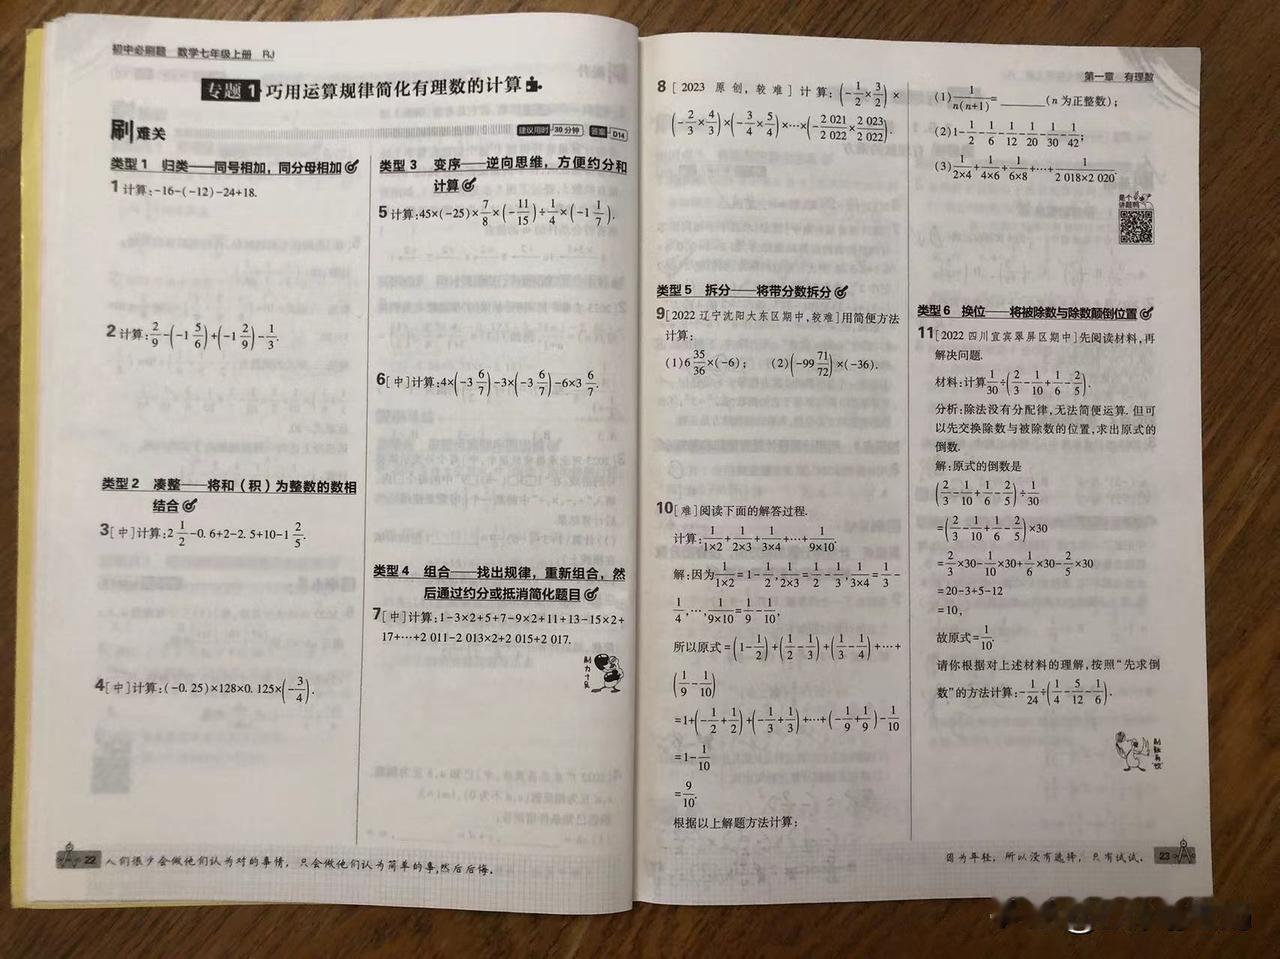 初中必刷题 数学七年级上册 RJ
专题1 巧用运算规律简化有理数的计算
刷难关
建议用时 30分钟 答案 D14
类型1 归类——同号相加，同分母相加
1 计算:-16-(-12)-24+18.
2 计算:2/9-(-1 5/6)+(-1 2/9)-1/3.
类型2 凑整——将和(积)为整数的数相
结合
3 [中]计算:2 1/2-0.6+2-2.5+10-1 2/5.
4 [中]计算:(-0.25)×128×0.125×(-3/4).
类型3 变序——逆向思维，方便约分和
计算
5 计算:45×(-25)×7/8×(-11/15)÷1/4×(-1 1/7).
6 [中]计算:4×(-3 6/7)-3×(-3 6/7)-6×3 6/7.
类型4 组合——找出规律，重新组合，然
后通过约分或抵消简化题目
7 [中]计算:1-3×2+5+7-9×2+11+13-15×2+
17+…+2 011-2 013×2+2 015+2 017.
22 人们很少会做他们认为对的事情，只会做他们认为简单的事,然后后悔.
第一章 有理数
8 [2023 原创,较难]计算:(-1/2×3/2)×
(-2/3×4/3)×(-3/4×5/4)×…×(-2 021/2 022×2 023/2 022).
类型5 拆分——将带分数拆分
9 [2022 辽宁沈阳大东区期中,较难]用简便方法
计算:
(1)6 35/36×(-6); (2)(-99 71/72)×(-36).
10 [难]阅读下面的解答过程.
计算:1/1×2+1/2×3+1/3×4+…+1/9×10.
解:因为1/1×2=1-1/2,1/2×3=1/2-1/3,1/3×4=1/3-
1/4,…,1/9×10=1/9-1/10,
所以原式=(1-1/2)+(1/2-1/3)+(1/3-1/4)+…+
(1/9-1/10)
=1+(-1/2+1/2)+(-1/3+1/3)+…+(-1/9+1/9)-1/10
=1-1/10
=9/10.
根据以上解题方法计算:
(1)1/n(n+1)=______(n为正整数);
(2)1-1/2-1/6-1/12-1/20-1/30-1/42;
(3)1/2×4+1/4×6+1/6×8+…+1/2 018×2 020.
类型6 换位——将被除数与除数颠倒位置
11 [2022 四川宜宾翠屏区期中]先阅读材料,再
解决问题.
材料:计算1/30÷(2/3-1/10+1/6-2/5).
分析:除法没有分配律,无法简便运算.但可
以先交换除数与被除数的位置,求出原式的
倒数.
解:原式的倒数是
(2/3-1/10+1/6-2/5)÷1/30
=(2/3-1/10+1/6-2/5)×30
=2/3×30-1/10×30+1/6×30-2/5×30
=20-3+5-12
=10,
故原式=1/10.
请你根据对上述材料的理解,按照“先求倒
数”的方法计算:-1/24÷(1/4-5/12-1/6).
因为年轻，所以没有选择，只有试试. 23